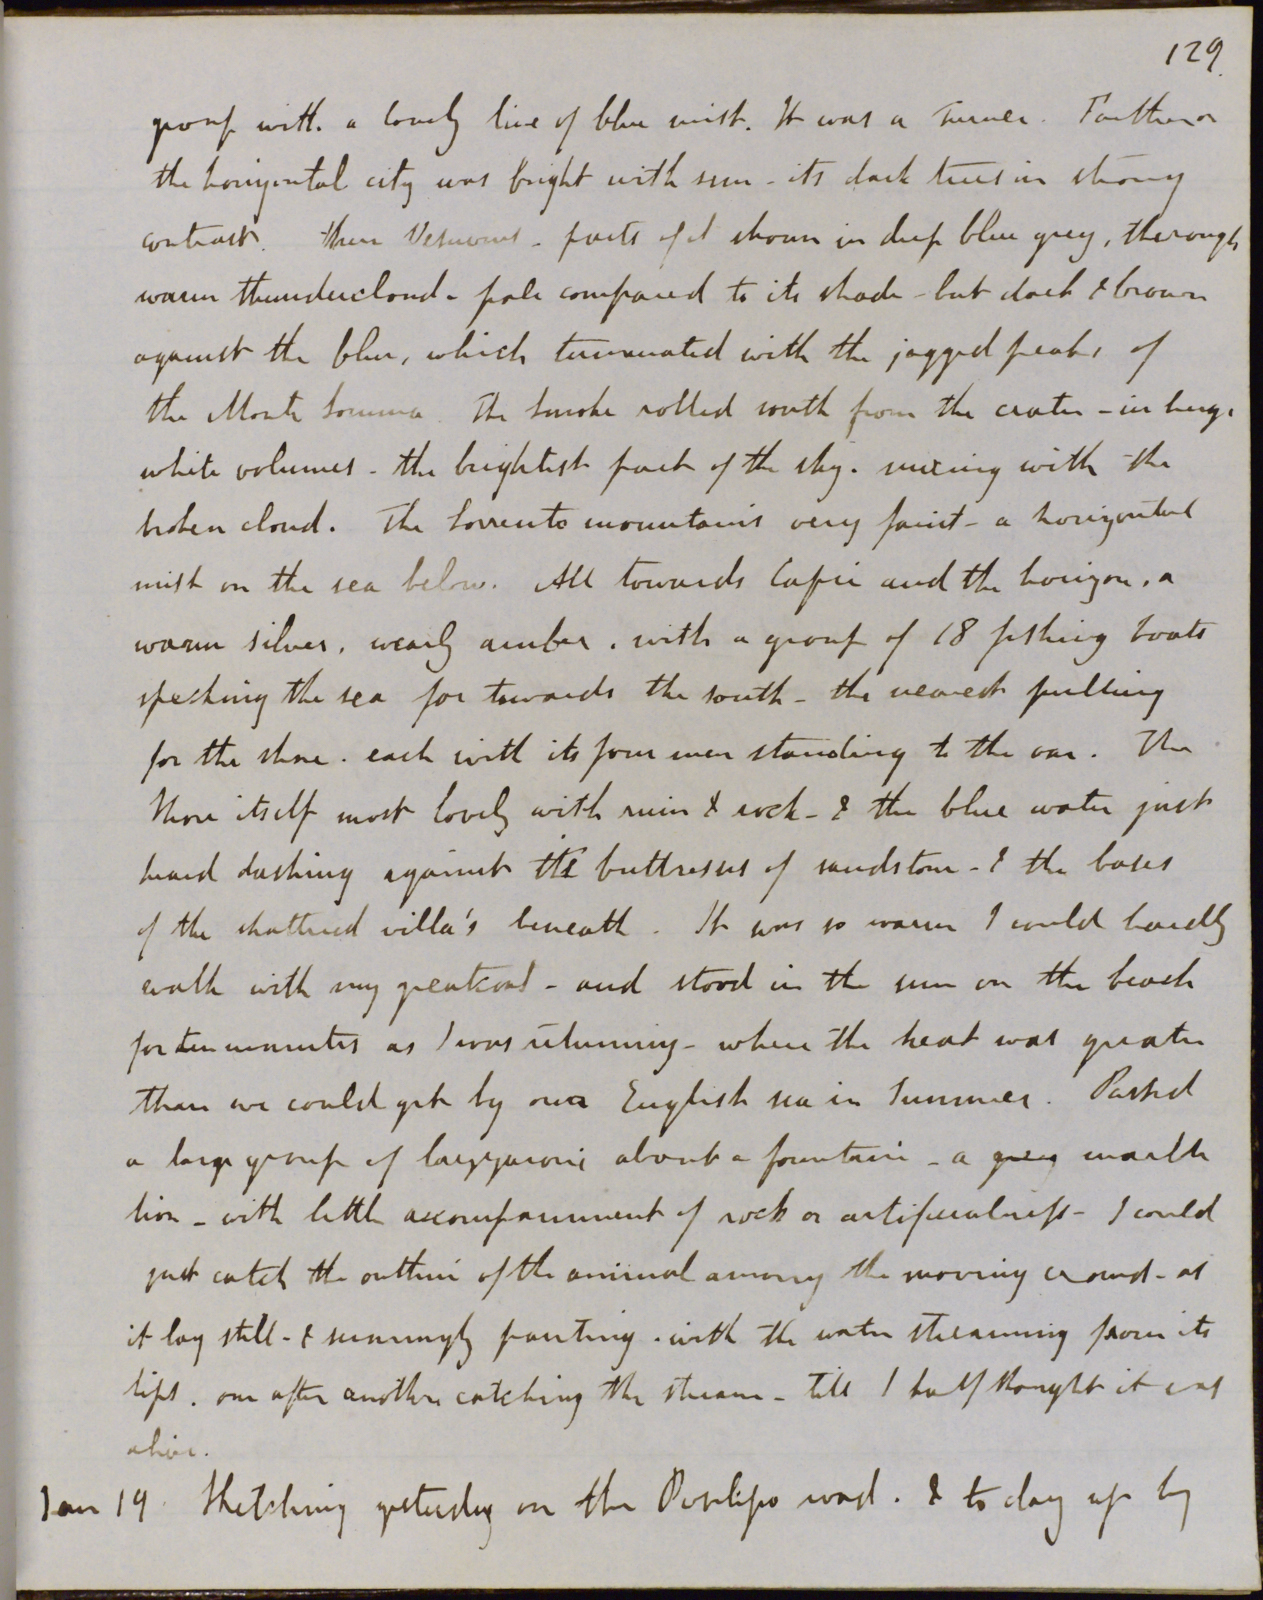 129
group with a lovely line of blue mist. It was a Turner. Farther on
the horizontal city was bright with sun - its dark trees in strong
contrast. Then Vesuvius - parts of it shown in deep blue grey, through
warm thundercloud - pale compared to its shade - but dark & brown
against the blue, which terminated with the jagged peaks of
the Monte Somma. The smoke rolled south from the crater - in huge
white volumes - the brightest part of the sky. mixing with the
broken cloud. The Sorrento mountains very faint - a horizontal
mist on the sea below. All towards Capri and the horizon, a
warm silver, nearly amber. with a group of 18 fishing boats
specking the sea far towards the south - the nearest pulling
for the shore. each with its four men standing to the oar. The
shore itself most lovely with ruin & rock - & the blue water just
heard dashing against the buttresses of sandstone - & the bases
of the shattered villa's beneath. It was so warm I could hardly
walk with my greatcoat - and stood in the sun on the beach
for ten minutes as I was returning - where the heat was greater
than we could get by our English sea in Summer. Passed
a large group of lazzaroni about a fountain - a grey marble
lion - with little accompaniment of rock or artificialness - I could
just catch the outline of the animal among the moving crowd - as
it lay still - & seemingly panting. with the water streaming from its
lips. one after another catching the stream - till I half thought it was
alive.
Jan 19. Sketching yesterday on the Posilipo road. & to day up by